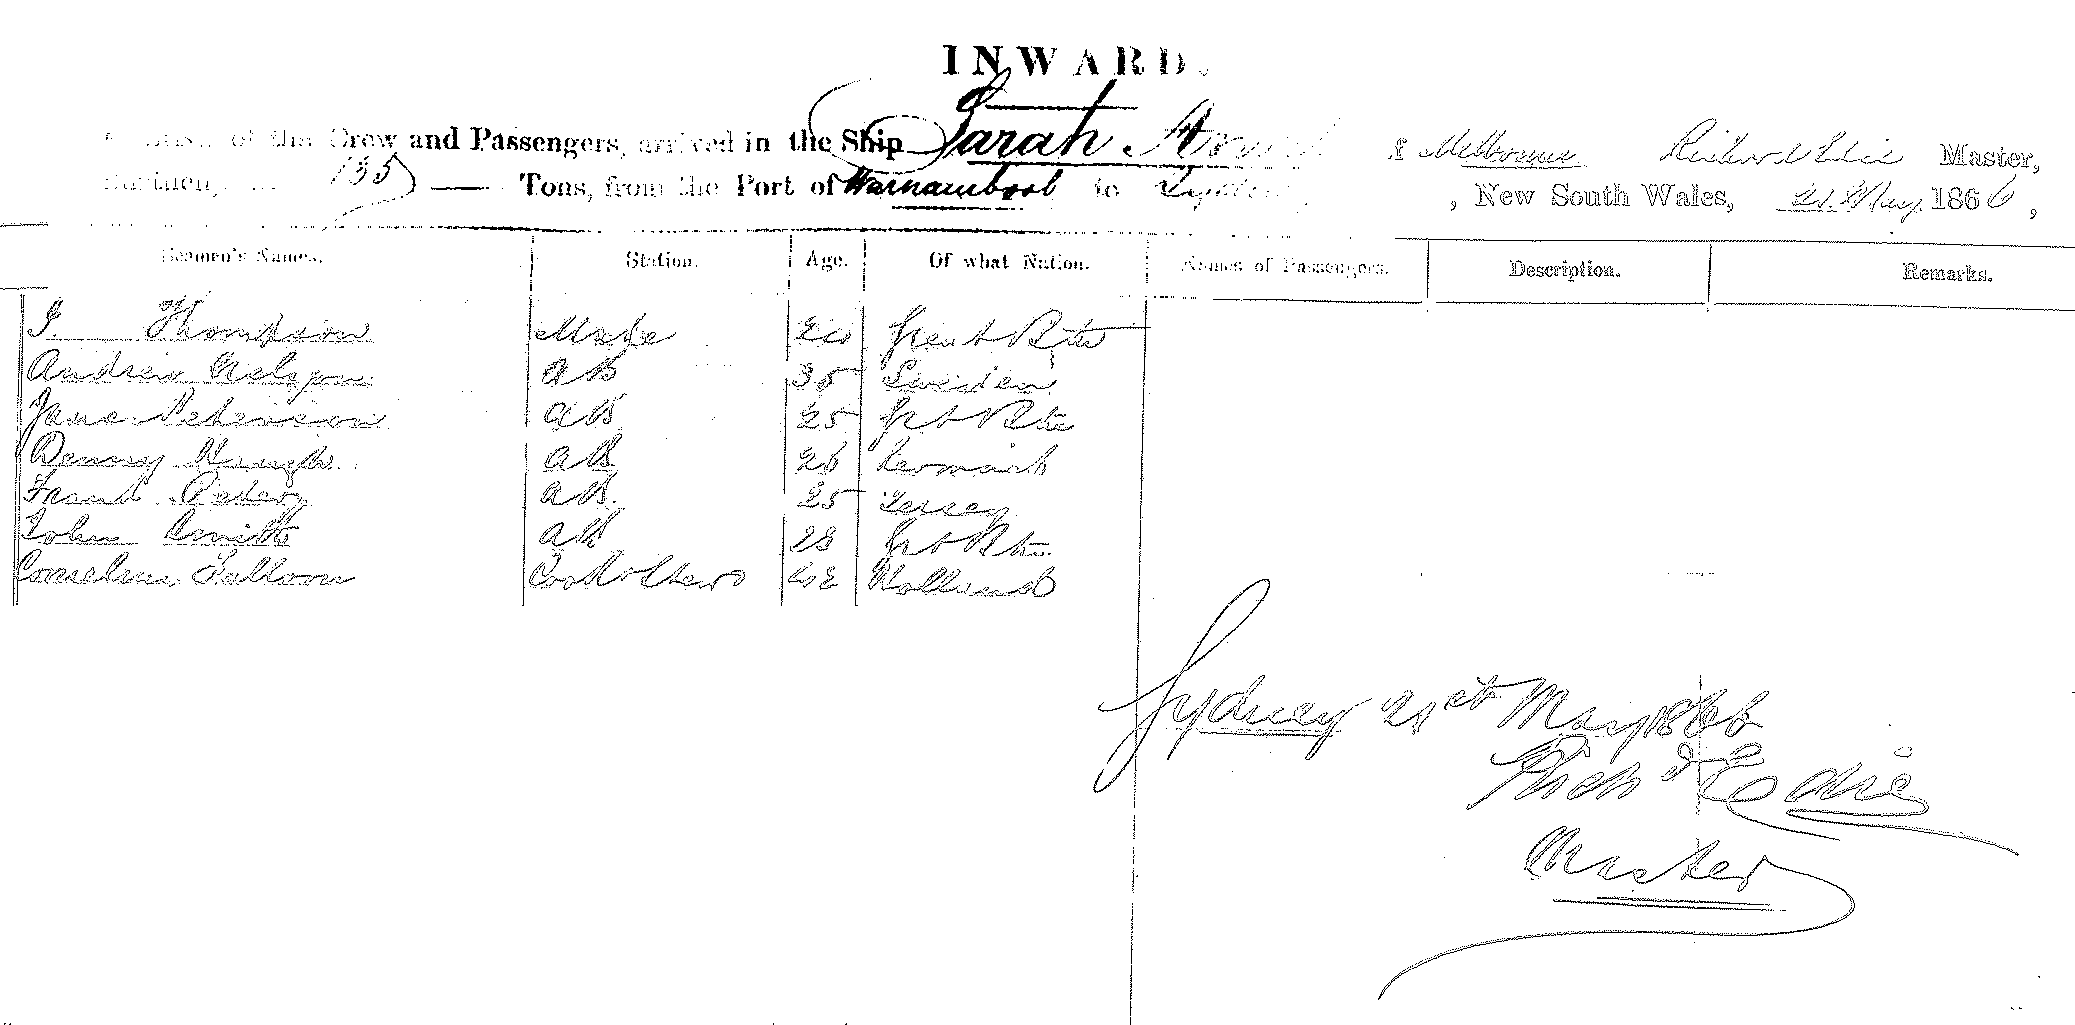 INWARD.
of the Crew and Passengers, arrived in the Ship Sarah of Melbourne Richard Edie Master,
Burthen, 135 Tons, from the Port of Warnambool to Sydney, New South Wales, 21 May 1866,
Seamen's Names. Station. Age. Of what Nation. Names of Passengers. Description. Remarks.
Thompson Mate Great Britn
Andrew Nelson AB Sweden
Peterson AB 25 Grt Britn
AB 26
Peters AB 25 Jersey
John Smith AB 28 Grt Britn
Cornelius Cook & Steward 42 Holland
Sydney 21st May 1866
Richd Edie
Master